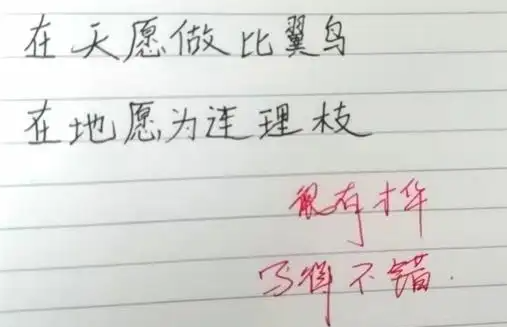 在天愿做比翼鸟
在地愿为连理枝
很有才华
写得不错.